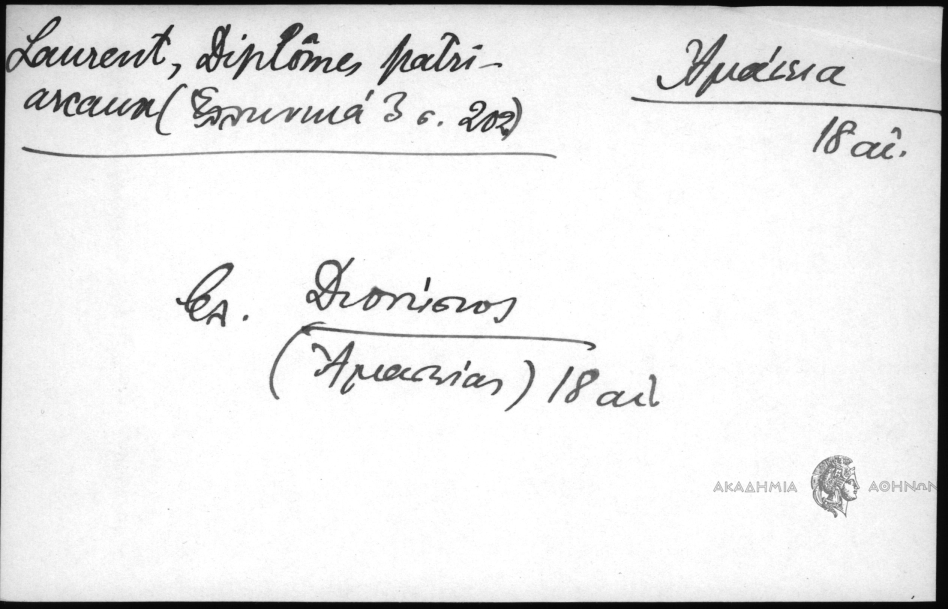 Laurent, Diplômes patri-
arcaux (Ἑλληνικά 3 σ. 202)
Ἀμάσεια
18 αἰ.
Ἐπ. Διονύσιος
(Ἀμασείας) 18 αἰ
ΑΚΑΔΗΜΙΑ ΑΘΗΝΩΝ